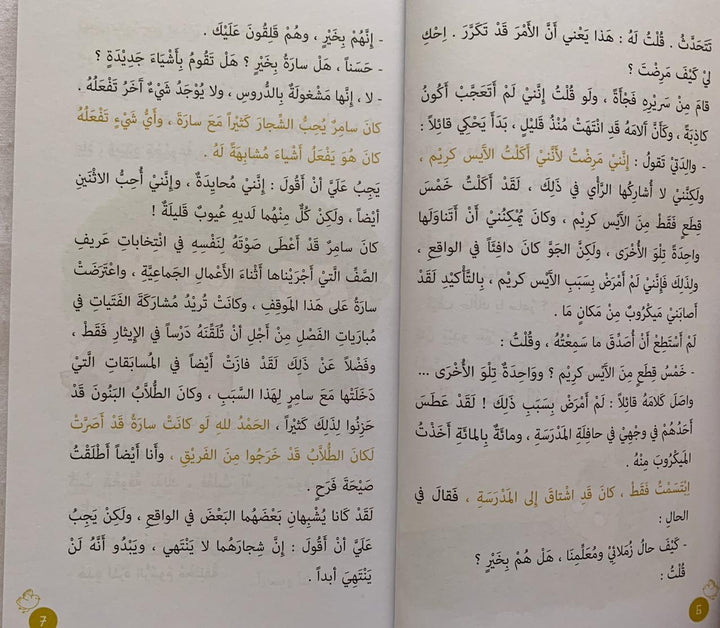 تَتَحَدَّثُ . قُلْتُ لَهُ : هَذا يَعْني أَنَّ الأَمْرَ قَدْ تَكَرَّرَ . اِحْكِ
لِيْ كَيْفَ مَرِضْتَ ؟
قامَ مِنْ سَريْرِهِ فَجْأَةً ، ولَو قُلْتُ إِنَّنيْ لَمْ أَتَعَجَّبْ أَكُونُ
كاذِبَةً ، وكَأَنَّ آلامَهُ قَدِ انْتَهَتْ مُنْذُ قَليْلٍ ، بَدَأَ يَحْكِي قائِلاً :
- والِدَتِيْ تَقولُ : إِنَّنيْ مَرِضْتُ لأَنَّنيْ أَكَلْتُ الآيس كريْم ،
ولَكِنَّنيْ لا أُشارِكُها الرَّأْي في ذَلِكَ ، لَقَدْ أَكَلْتُ خَمْسَ
قِطَعٍ فَقَطْ مِنَ الآيْس كريْم ، وكانَ يُمْكِنُنيْ أَنْ أَتَناوَلَها
واحِدَةً تِلْوَ الأُخْرَى ، ولَكِنَّ الجَوَّ كانَ دافِئاً في الواقِعِ ،
ولذَلِكَ فَإِنَّنيْ لَمْ أَمْرَضْ بِسَبَبِ الآيْس كريْم ، بِالتَّأْكيْدِ لَقَدْ
أَصابَنيْ مَيكْرُوبٌ مِنْ مَكانٍ مَا .
لَمْ أَسْتَطِعْ أَنْ أُصَدِّقَ ما سَمِعْتُهُ ، وقُلْتُ :
- خَمْسُ قِطَعٍ مِنَ الآيْس كريْم ؟ ووَاحِدَةً تِلْوَ الأُخْرَى ...
واصَلَ كَلامَهُ قائِلاً : لَمْ أَمْرَضْ بِسَبَبِ ذَلِكَ ! لَقَدْ عَطَسَ
أَحَدُهُمْ في وجْهِيْ في حافِلَةِ المَدْرَسَةِ ، ومائَةٌ بِالمائَةِ أَخَذْتُ
المَيكْرُوبَ مِنْهُ .
اِبْتَسَمْتُ فَقَطْ ، كانَ قَدِ اشْتاقَ إِلى المَدْرَسَةِ ، فَقالَ في
الحالِ :
- كَيْفَ حالُ زُمَلائِيْ ومُعَلِّمِنَا ، هَلْ هُمْ بِخَيْرٍ ؟
قُلْتُ :
6
- إِنَّهُمْ بِخَيْرٍ ، وهُمْ قَلِقُونَ عَلَيْكَ .
- حَسَناً ، هَلْ سارَةُ بِخَيْرٍ ؟ هَلْ تَقُومُ بِأَشْياءَ جَديْدَةٍ ؟
- لا ، إِنَّها مَشْغولَةٌ بِالدُّروسِ ، ولا يُوْجَدُ شَيْءٌ آخَرُ تَفْعَلُهُ .
كانَ سامِرٌ يُحِبُّ الشِّجارَ كَثيْراً مَعَ سارَةَ ، وأَيُّ شَيْءٍ تَفْعَلُهُ
كانَ هُوَ يَفْعَلُ أَشْياءَ مُشابِهَةً لَهُ .
يَجِبُ عَلَيَّ أَنْ أَقُولَ : إِنَّنيْ مُحايِدَةٌ ، وإِنَّنيْ أُحِبُّ الاثْنَينِ
أَيْضاً ، ولَكِنْ كُلٌّ مِنْهُما لَديهِ عُيوبٌ قَليلَةٌ !
كانَ سامِرٌ قَدْ أَعْطَى صَوْتَهُ لِنَفْسِهِ في انْتِخاباتِ عَريفِ
الصَّفِّ الَّتيْ أَجْرَيْناها أَثْناءَ الأَعْمالِ الجَماعِيَّةِ ، واعْتَرَضَتْ
سارَةُ عَلى هَذا المَوقِفِ ، وكانَتْ تُريْدُ مُشارَكَةَ الفَتَياتِ في
مُبارَياتِ الفَصْلِ مِنْ أَجْلِ أَنْ تُلَقِّنَهُ دَرْساً في الإيْثارِ فَقَطْ ،
وفَضْلاً عَنْ ذَلِكَ لَقَدْ فازَتْ أَيْضاً في المُسابَقاتِ الَّتيْ
دَخَلَتْها مَعَ سامِرٍ لِهَذا السَّبَبِ ، وكانَ الطُّلاَّبُ البَنُونَ قَدْ
حَزِنُوا لِذَلِكَ كَثيْراً ، الحَمْدُ للهِ لَو كانَتْ سارَةُ قَدْ أَصَرَّتْ
لَكانَ الطُّلاَّبُ قَدْ خَرَجُوا مِنَ الفَريْقِ ، وأَنا أَيْضاً أَطْلَقْتُ
صَيْحَةَ فَرَحٍ .
لَقَدْ كانَا يُشْبِهانِ بَعْضَهُما البَعْضَ في الواقِعِ ، ولَكِنْ يَجِبُ
عَلَيَّ أَنْ أَقُولَ : إِنَّ شِجارَهُما لا يَنْتَهي ، ويَبْدُو أَنَّهُ لَنْ
يَنْتَهِيَ أَبداً .
7